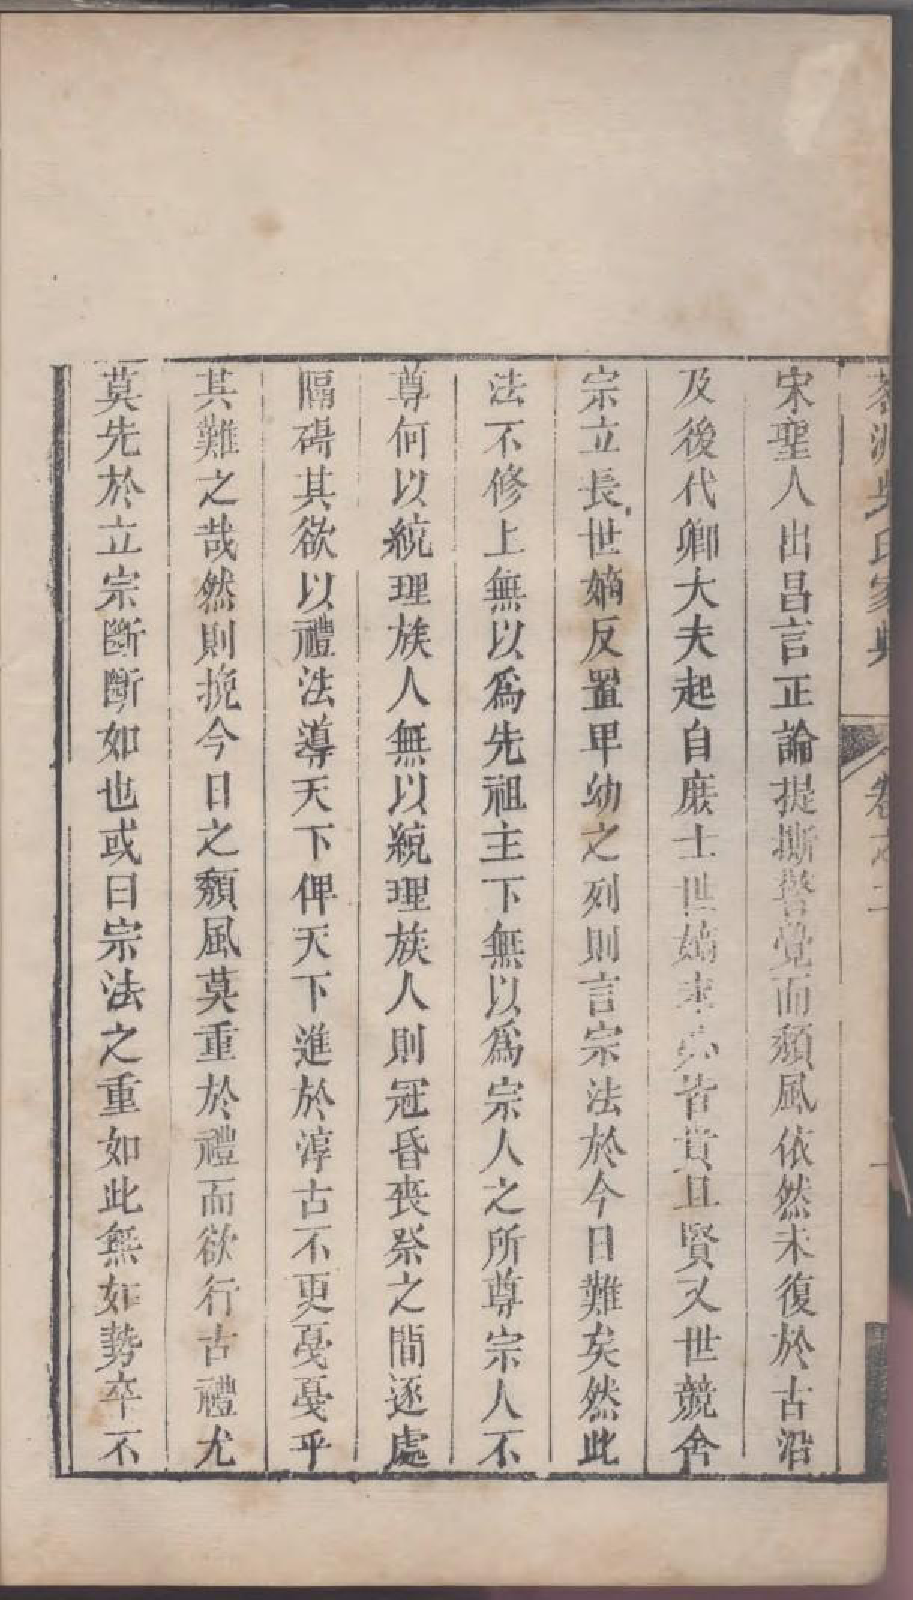 茗洲吳氏家典 卷之二 一
宋聖人出昌言正論提撕警覺而頽風依然未復於古沿
及後代卿大夫起自庶士世嫡未必皆貴且賢又世競舍
宗立長世嫡反置甲幼之列則言宗法於今日難矣然此
法不修上無以爲先祖主下無以爲宗人之所尊宗人不
尊何以統理族人無以統理族人則冠昏喪祭之間逐處
隔碍其欲以禮法導天下俾天下進於淳古不更戞戞乎
其難之哉然則挽今日之頽風莫重於禮而欲行古禮尤
莫先於立宗斷斷如也或曰宗法之重如此無如勢卒不